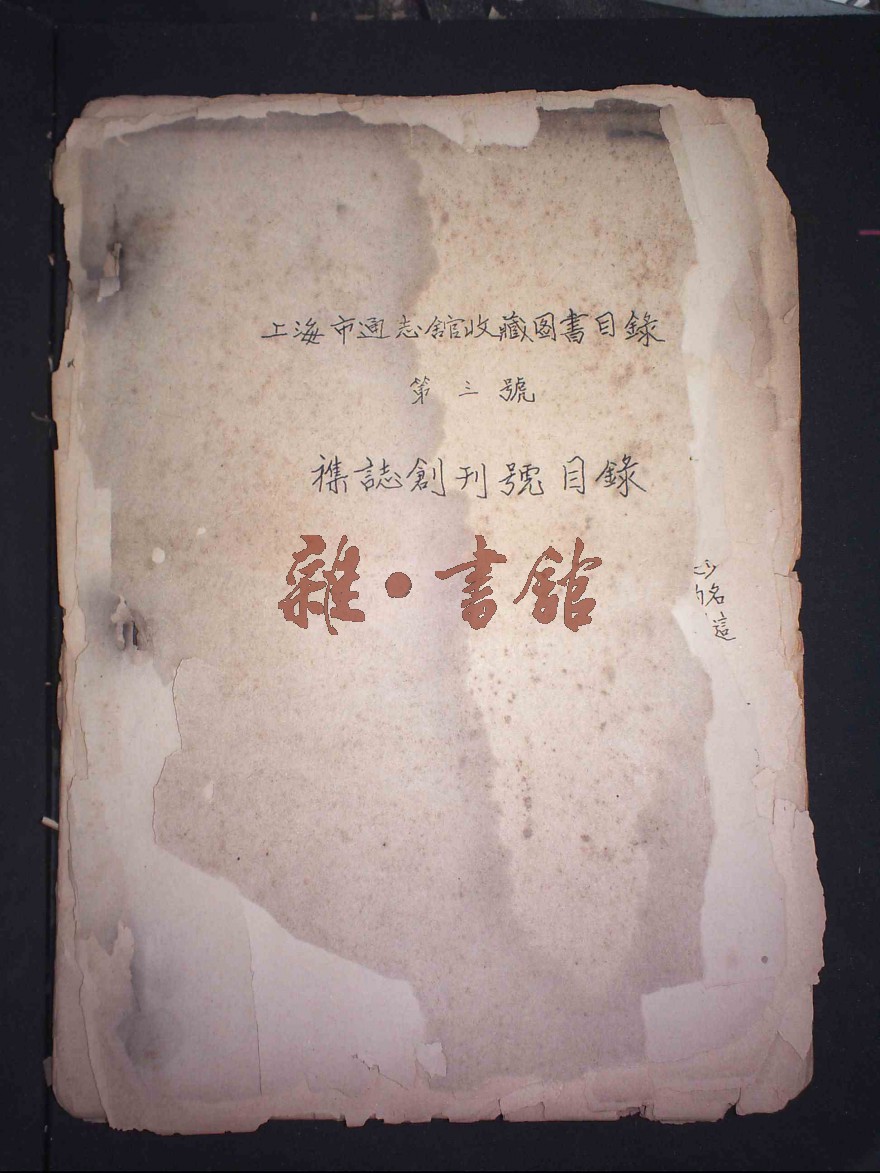 上海市通志館收藏图書目錄
第三號
襍誌創刊號目錄
雜•書館
名
這